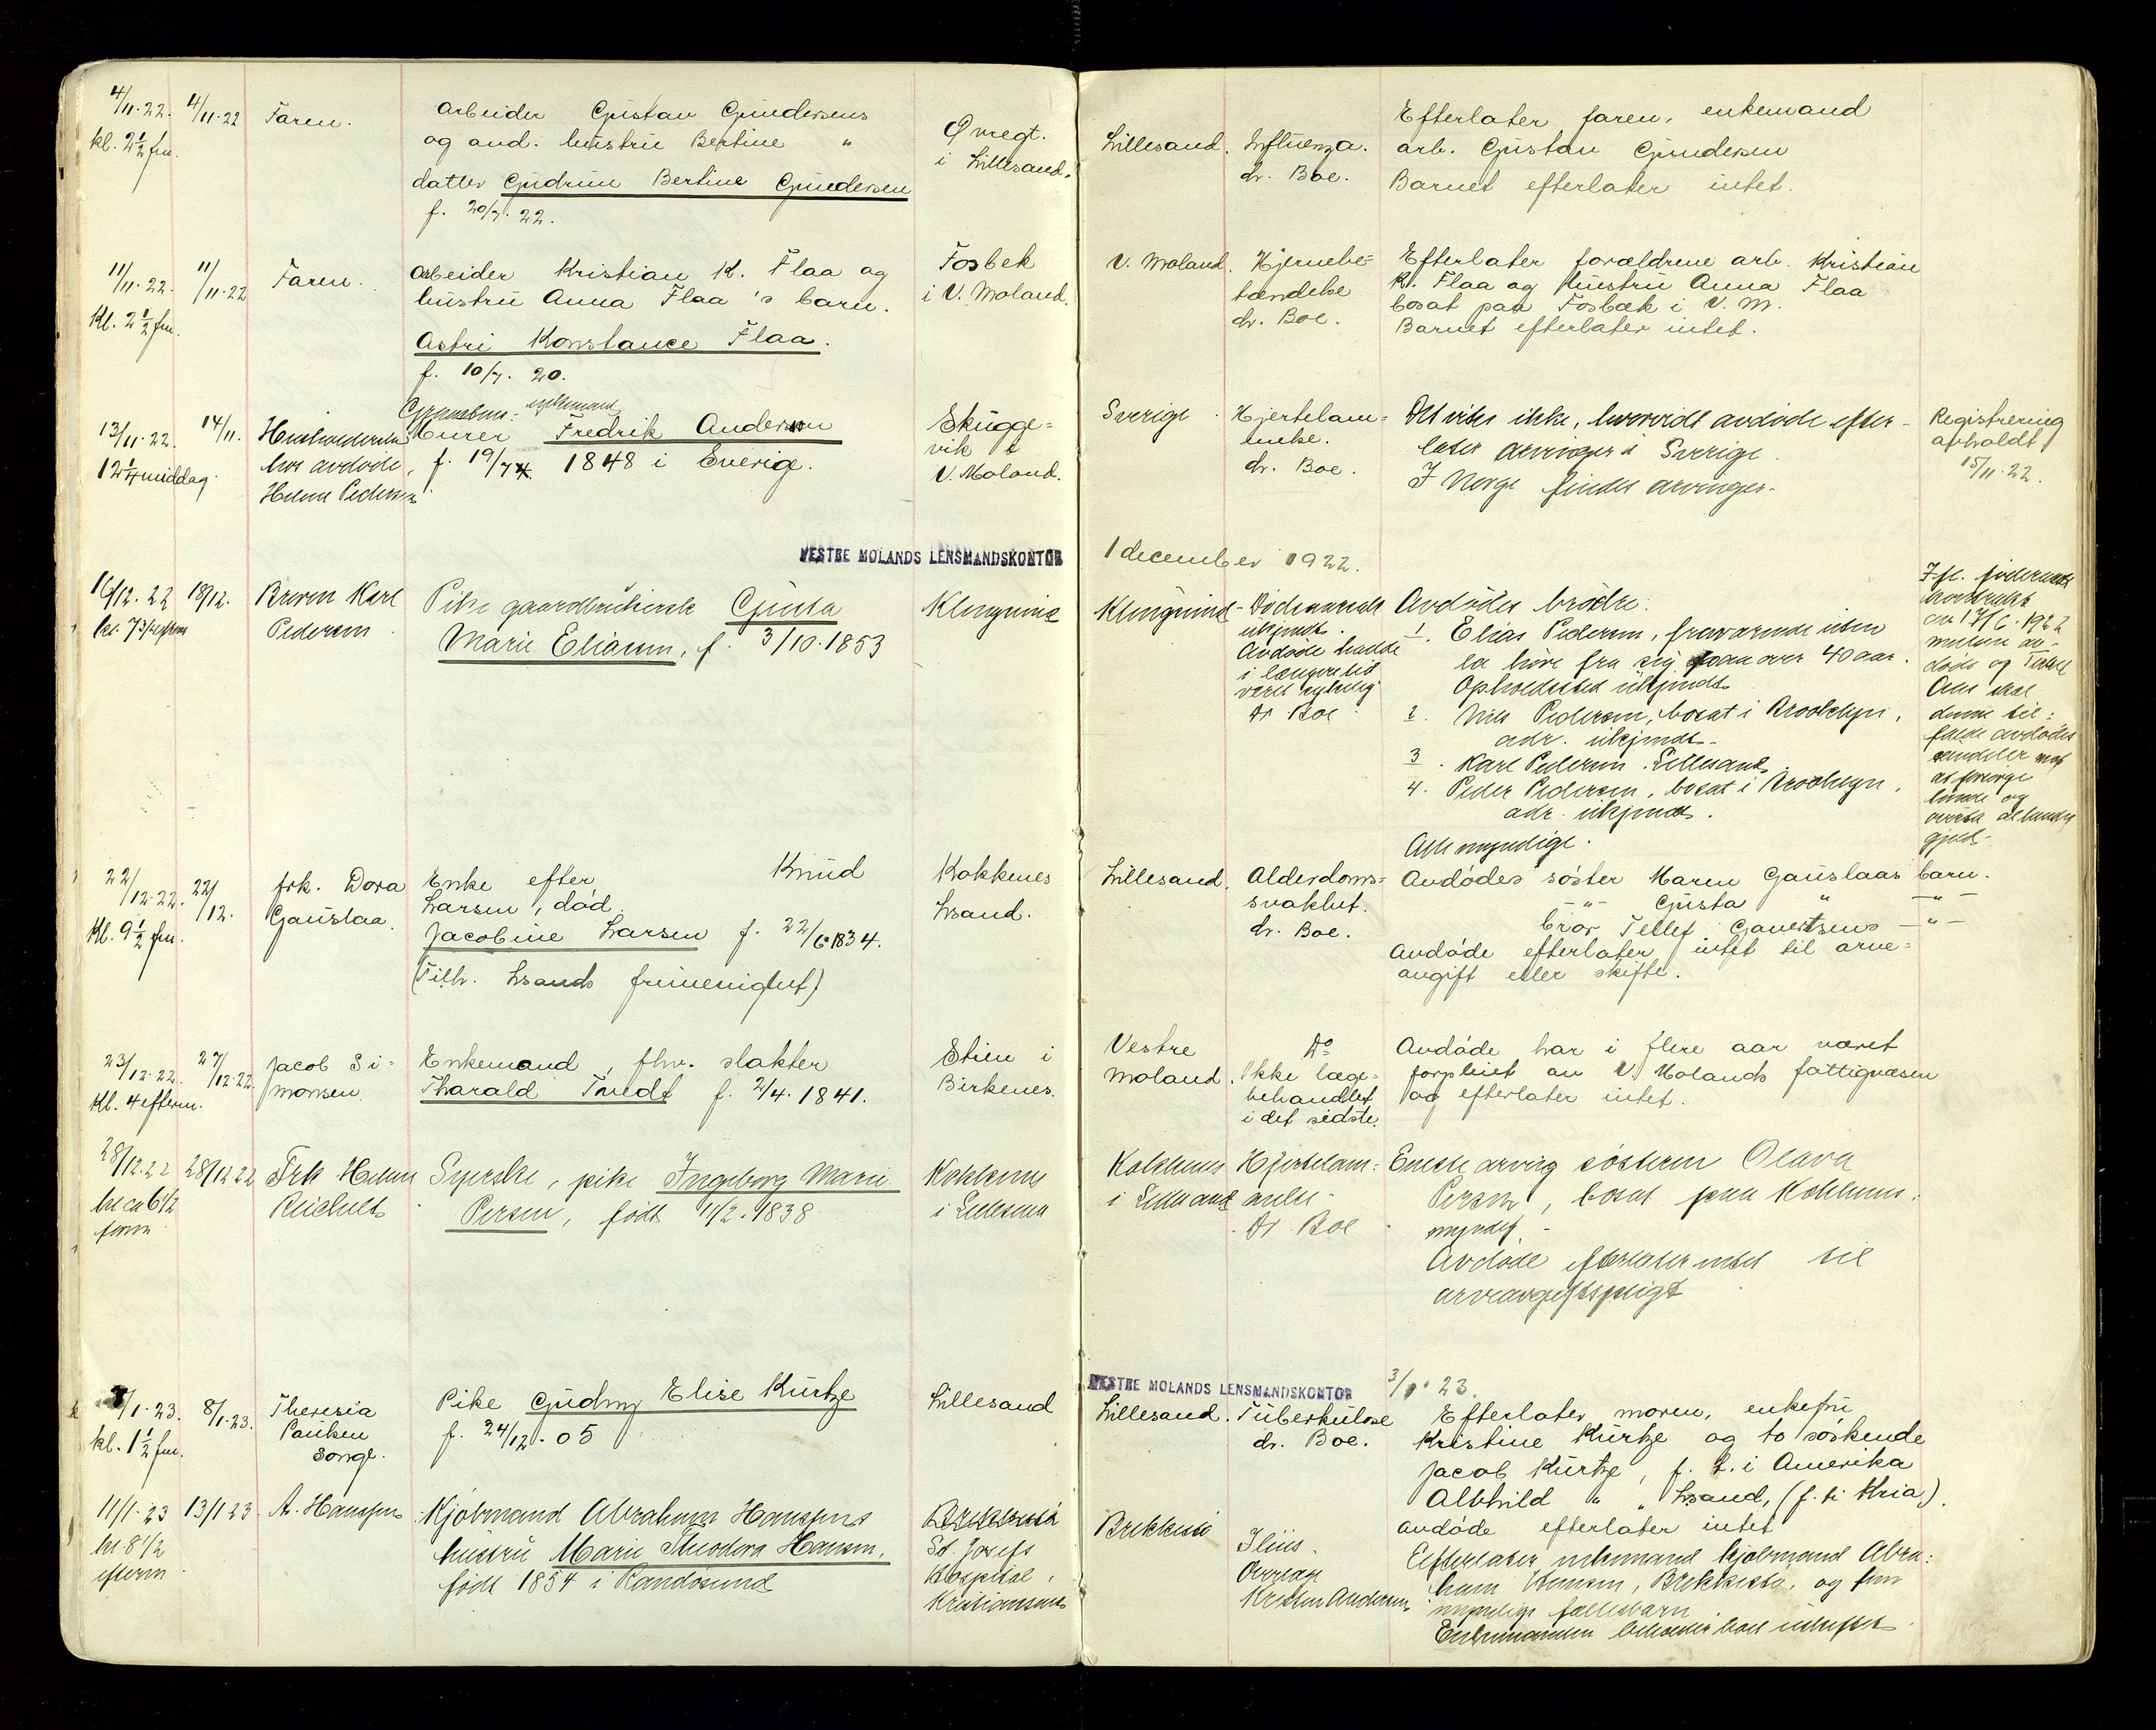 4/11.22.
kl. 2½ fm.
4/11.22
Faren.
arbeider Gustav Gundersens
og avd. hustru Bertine "
datter Gudrun Bertine Gundersen
f. 20/7. 22.
Øvregt.
i Lillesand.
Lillesand.
Influenza.
dr. Boe.
Efterlater faren, enkemand
arb. Gustav Gundersen
Barnet efterlater intet.
11/11.22.
Kl. 2½ fm.
11/11.22
Faren.
Arbeider Kristian K. Flaa og
hustru Anna Flaa's barn.
Astri Konstance Flaa.
f. 10/7. 20.
Fosbek
i V. Moland.
V. Moland.
Hjernebe=
tændelse
dr. Boe.
Efterlater forældrene arb. Kristian
K. Flaa og hustru Anna Flaa
bosat paa Fosbæk i V. M.
Barnet efterlater intet.
13/11.22.
12¼ middag
14/11.
Husholderske
hos avdøde,
Helene Pedersen
enkemand
Murer Fredrik Andersen
f. 19/7 1848 i Sverige.
Skugge=
vik i
V. Moland.
Sverige
Hjertelam=
melse.
dr. Boe.
Det vites ikke, hvorvidt avdøde efter-
later arvinger i Sverige.
I Norge findes arvinger.
Registrering
avholdt
15/11.22.
VESTRE MOLANDS LENSMANDSKONTOR
1 december 1922.
16/12. 22
kl. 7 3/4 efterm
18/12.
Broren Karl
Pedersen
Pike gaardbrukerske Gusta
Marie Eliassen, f. 3/10.1853
Dødsaarsak
ukjendt.
Avdøde hadde
i længere tid
været sykelig
Dr Boe
Avdødes brødre:
1. Elias Pedersen, fraværende uten
la høre fra sig paa over 40 aar.
Opholdssted ukjendt.
2. Nils Pedersen, bosat i Brooklyn,
adr. ukjendt.
3. Karl Pedersen. Lillesand.
4. Peder Pedersen, bosat i Brooklyn,
adr. ukjendt.
Alle myndige.
av 17/6. 1922
mellem av-
døde og
skal
denne til=
falde avdødes
mot
at
og
gjeld.
22/12.22.
Kl. 9½ fm.
22/12.
frk. Dora
Gauslaa.
Enke efter Knud
Larsen, død.
Jacobine Larsen f. 22/6 1834.
(Tilh. Lsands frimenighet)
Kokkenes
Lsand.
Lillesand.
Alderdoms=
svakhet.
dr. Boe.
Avdødes søster Maren Gauslaas barn.
-"- Gusta " -"-
bror Tellef -"-
avdøde efterlater intet til arve=
avgift eller skifte.
23/12.22.
Kl. 4 efterm.
27/12.22.
Jacob Si=
monsen.
Enkemand, fhv. slakter
Tharald Tvedt f. 2/4. 1841.
Stien i
Birkenes.
Vestre
Moland.
Do
Ikke læge=
behandlet
i det sidste.
Avdøde har i flere aar været
forpleiet av V. Molands fattigvæsen
og efterlater intet.
28/12.22
kl ca 6½
form
28/12 22
Frk Helene
Syerske, pike Ingeborg Marie
Persen, født 11/2. 1838
i Lillesand
i Lillesand
Hjertelam=
melse.
Dr Boe
Eneste arving søsteren Olava
Persen, bosat paa
myndig.
Avdøde efterlater intet til
arveavgiftspligt
VESTRE MOLANDS LENSMANDSKONTOR
3/1. 23.
/1.23.
kl. 1½ fm.
8/1.23.
Theresia
Paulsen
Songe.
Pike Gudny Elise Kurtze
f. 24/12. 05
Lillesand
Lillesand.
Tuberkulose
dr. Boe.
Efterlater moren, enkefru
Kristine Kurtze og to søskende
Jacob Kurtze, f. t. i Amerika
Albhild " " Lsand, (f. ti Kria).
avdøde efterlater intet
11/1.23
kl. 8 1/2
efterm
13/1 23.
A. Hanssen
Kjøbmand Abraham Hanssens
hustru Marie Theodora Hansen,
født 1854 i Randøsund
St. Josefs
Hospital,
Kristianssand
Brekkestø
Ileus.
Overlæge
Kristen Andersen
Efterlater enkemand kjøbmand Abra=
ham Hansen, Brekkestø, og fem
myndige fællesbarn
Enkemanden